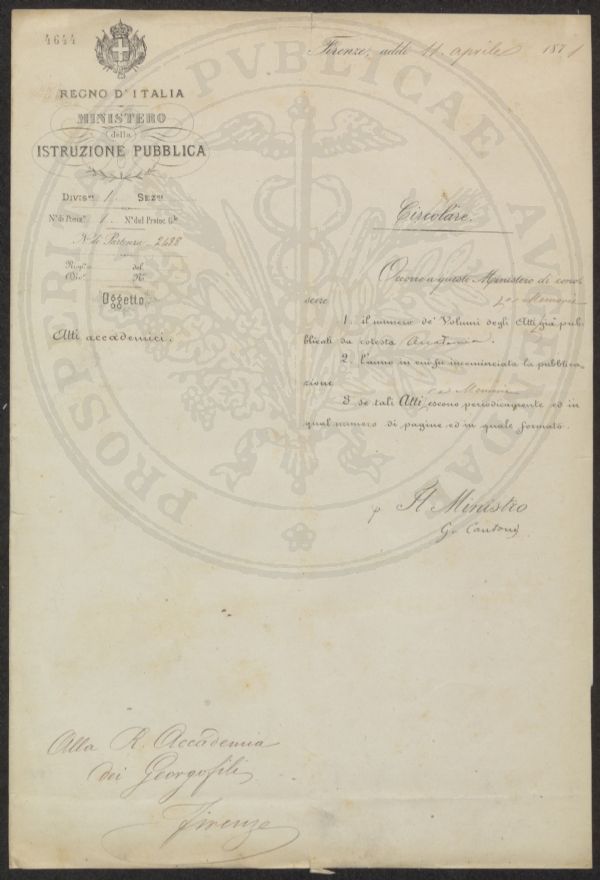 4644
Firenze, addì 11 aprile 1871
REGNO D'ITALIA
MINISTERO
della
ISTRUZIONE PUBBLICA
Divis.ne 1 Sez.ne
N.o di Posiz.e 1. N.o del Protoc. G.le
N.o di Partenza 2498
Risp.ta a del
Div.ne N.o
Oggetto
Atti accademici.
Circolare.
Occorre a questo Ministero di conoscere
o Memorie
1. il numero de' Volumi degli Atti già pubblicati
da cotesta Accademia.
2. l'anno in cui fu incominciata la pubblicazione
o Memorie
3 se tali Atti escono periodicamente ed in
qual numero di pagine ed in quale formato.
p Il Ministro
G. Cantoni
Alla R. Accademia
dei Georgofili
Firenze
PROSPERITATI PUBLICAE AUGENDAE